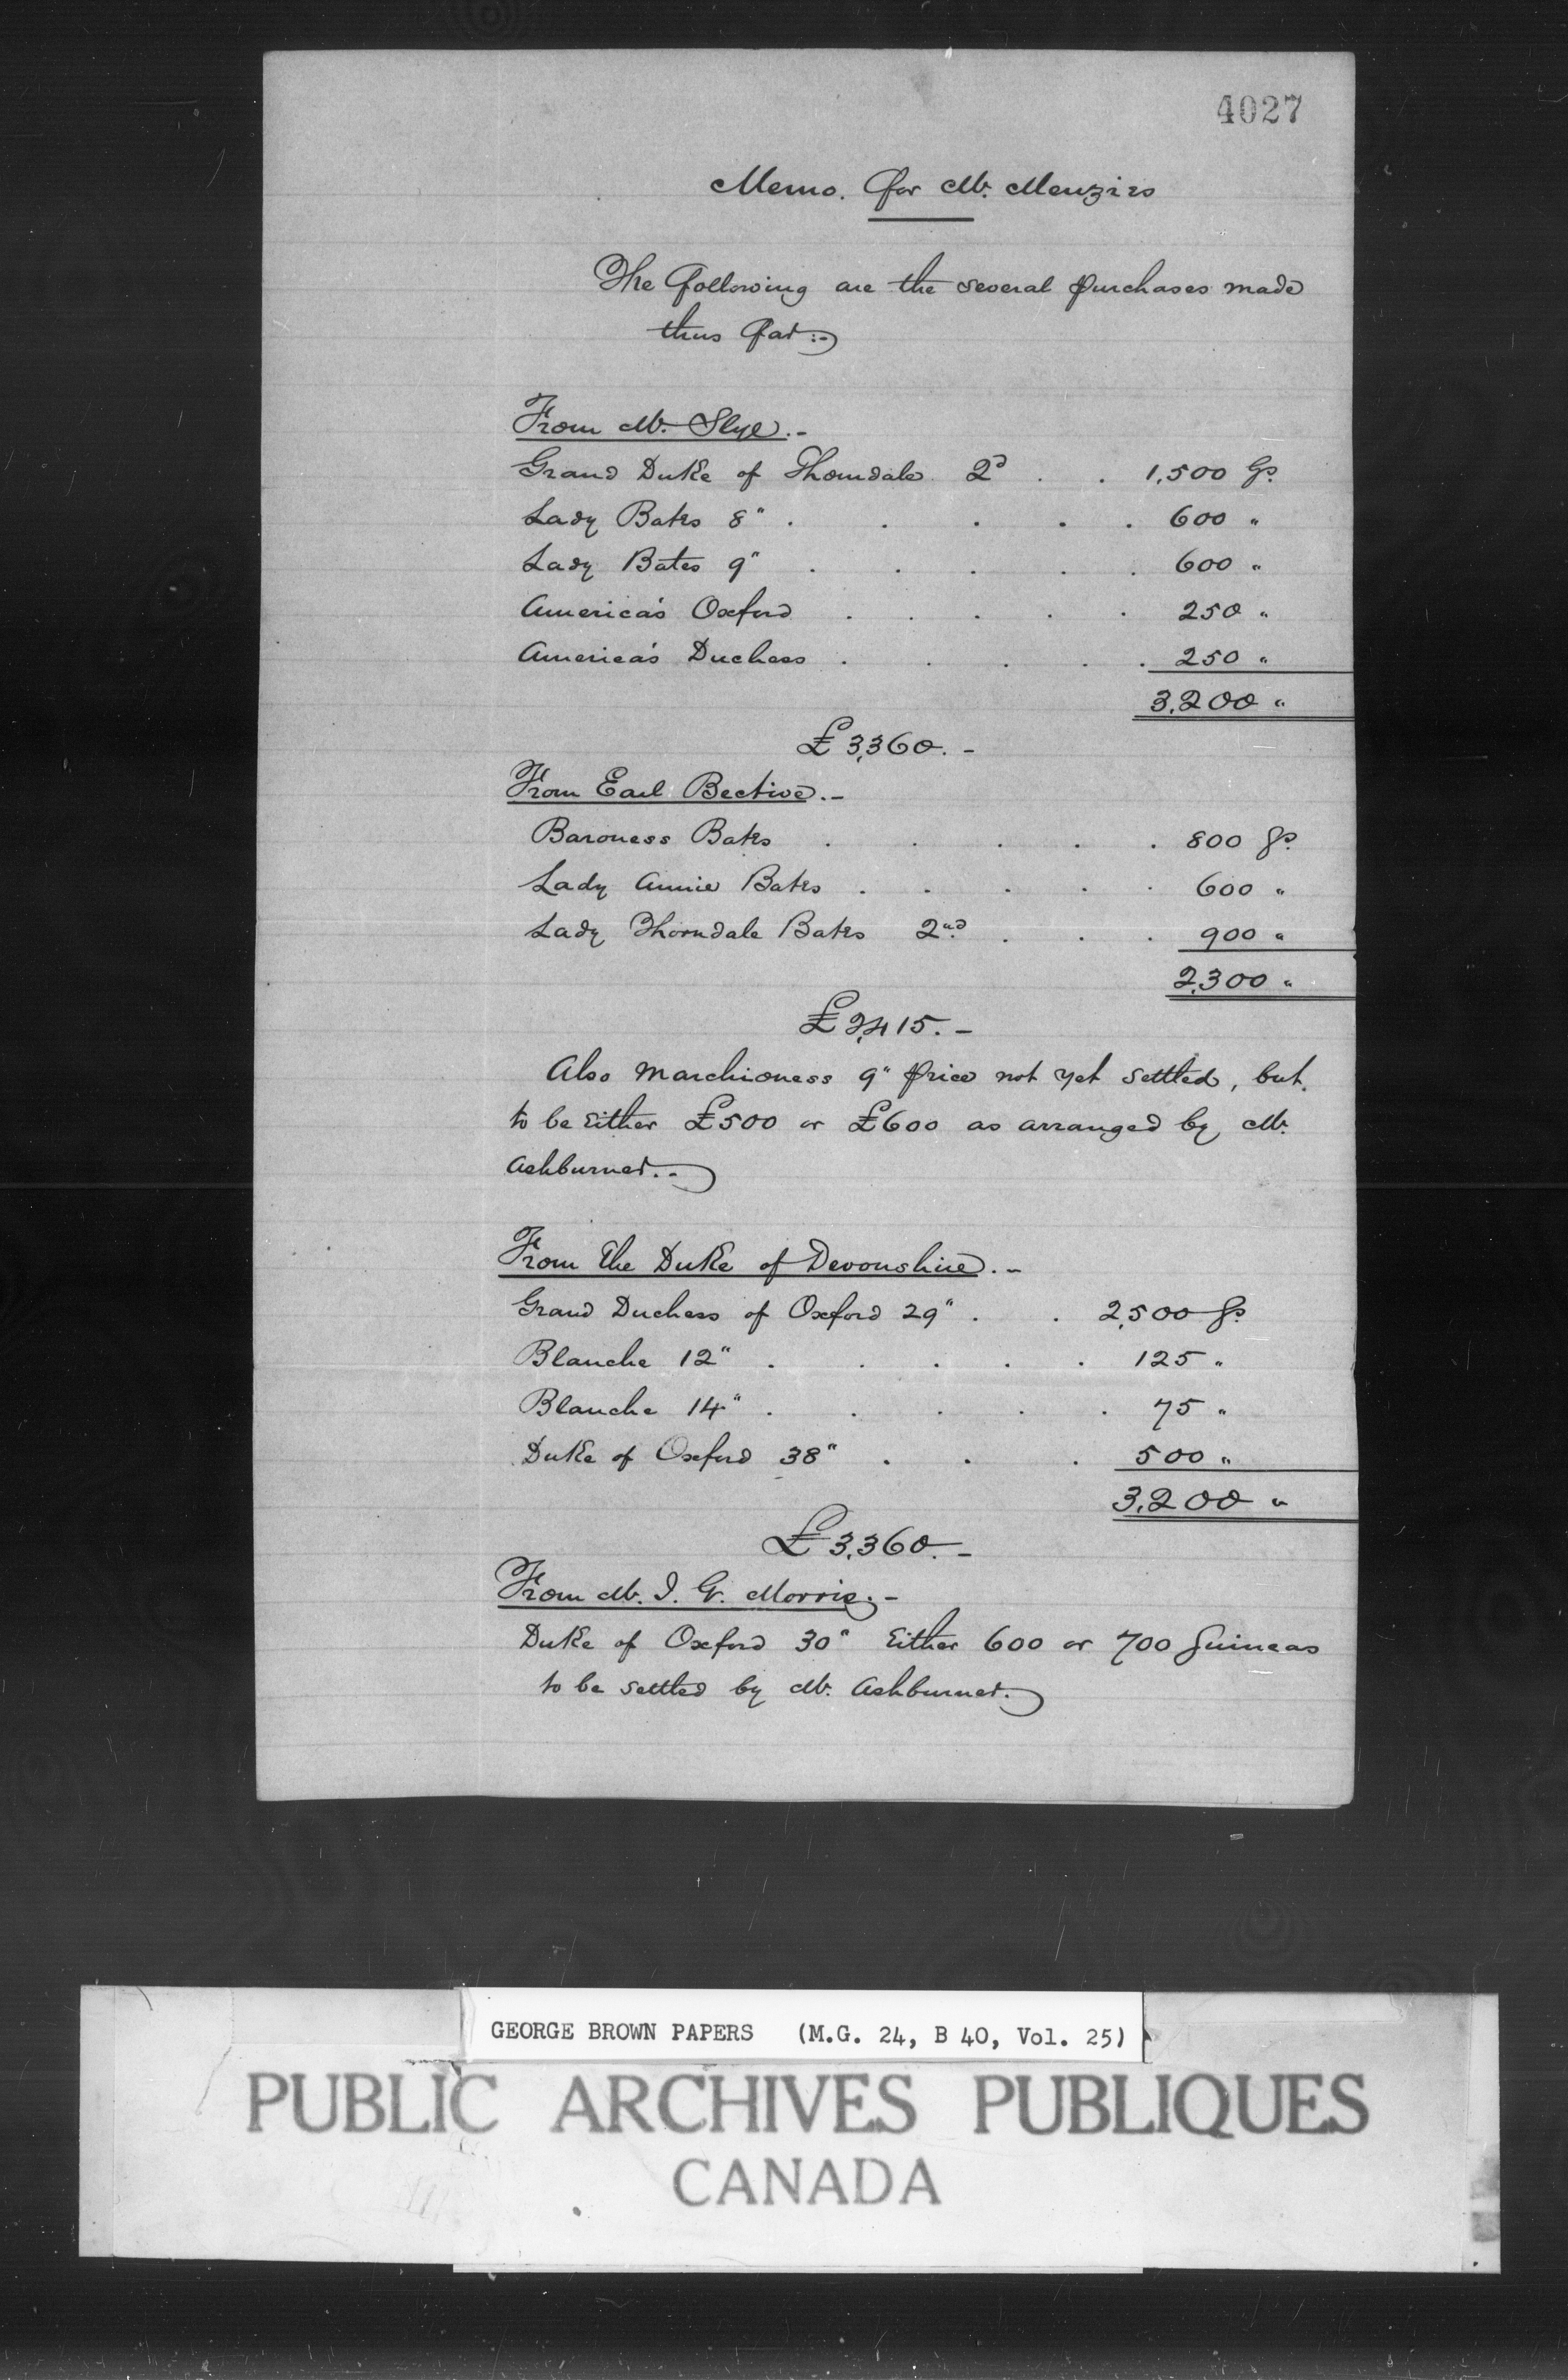 4027
Memo. for Mr. Menzies
The following are the several purchases made
thus far :-
From Mr. Slye. -
Grand Duke of Thorndale 2d . . 1,500 Gs.
Lady Bates 8" . . . . . 600 "
Lady Bates 9" . . . . . 600 "
America's Oxford . . . . . 250 "
America's Duchess . . . . . 250 "
3,200 "
£3,360. -
From Earl Bective. -
Baroness Bates . . . . . 800 gs.
Lady Annie Bates . . . . . 600 "
Lady Thorndale Bates 2nd . . . 900 "
2,300 "
£2,415. -
Also Marchioness 9" price not yet settled, but
to be either £500 or £600 as arranged by Mr.
Ashburner. -
From the Duke of Devonshire. -
Grand Duchess of Oxford 29" . . 2,500 gs
Blanche 12" . . . . . 125 "
Blanche 14" . . . . . 75 "
Duke of Oxford 38" . . . 500 "
3,200 "
£3,360. -
From Mr. I. G. Morris. -
Duke of Oxford 30" Either 600 or 700 guineas
to be settled by Mr. Ashburner.
GEORGE BROWN PAPERS (M.G. 24, B 40, Vol. 25)
PUBLIC ARCHIVES PUBLIQUES
CANADA